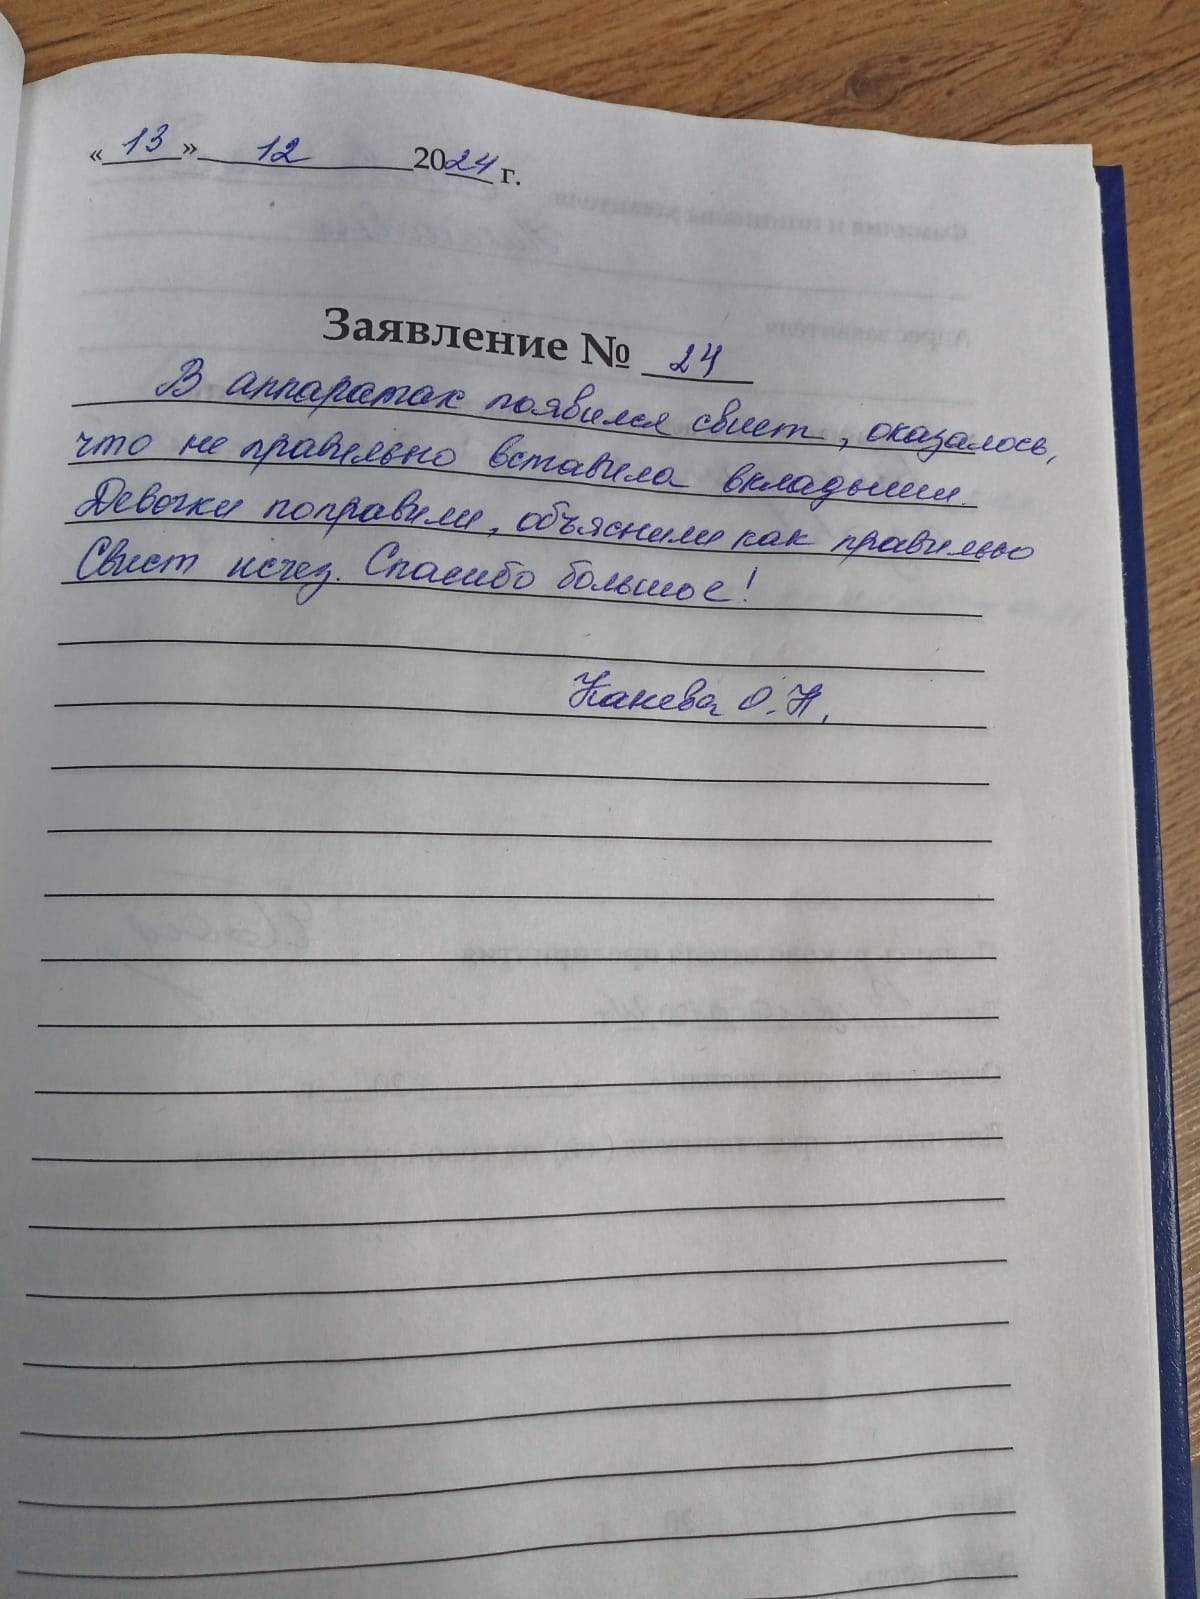 «13» 12 2024 г.
Заявление № 24
В аппаратах появился свист, оказалось,
что не правильно вставила вкладыши.
Девочки поправили, объяснили как правильно
Свист исчез. Спасибо большое!
Канева О.Н.